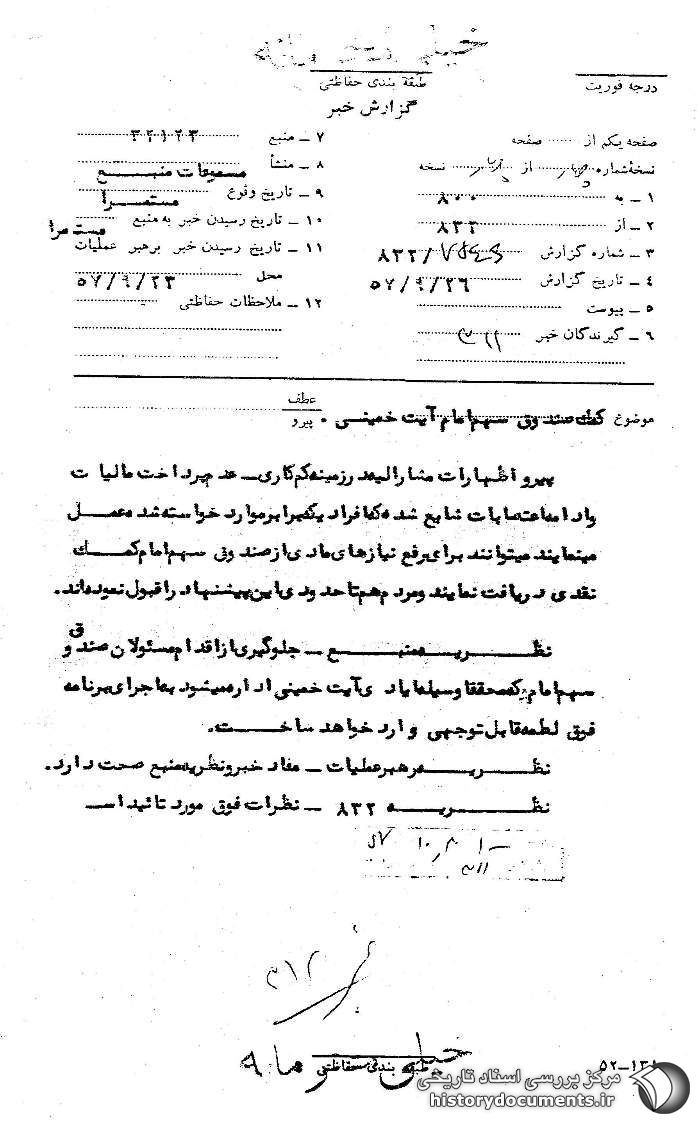 خیلی محرمانه
درجه فوریت
طبقه بندی حفاظتی
گزارش خبر
صفحه یکم از صفحه
نسخه شماره از نسخه
۱ ـ به ۸۰۰
۲ ـ از ۸۳۲
۳ ـ شماره گزارش ۸۳۲/
۴ ـ تاریخ گزارش ۵۷/۹/۲۶
۵ ـ پیوست
۶ ـ گیرندگان خبر ۳۱۱
۷ ـ منبع ۳۲۱۲۳
۸ ـ منشأ مسموعات منبع
۹ ـ تاریخ وقوع مستمرا
۱۰ ـ تاریخ رسیدن خبر به منبع مستمرا
۱۱ ـ تاریخ رسیدن خبر برهبر عملیات ۵۷/۹/۲۳
محل
۱۲ ـ ملاحظات حفاظتی
موضوع کمك صندوق سهم امام آیت خمینی .
عطف
پیرو
پیرو اظهارات مشارالیه در زمینه کم کاری ـ عدم پرداخت مالیات
وادامه اعتصابات شایع شده که افراد یکه برابر موارد خواسته شده عمل
مینمایند میتوانند برای رفع نیازهای مادی از صندوق سهم امام کمك
نقدی دریافت نمایند ومردم هم تا حدودی این پیشنهاد را قبول نموده اند.
نظریه منبع ـ جلوگیری از اقدام مسئولان صندوق و
سهم امام که محققا وسیله ایادی آیت خمینی اداره میشود به اجرای برنامه
فوق لطمه قابل توجهی وارد خواهد ساخت.
نظریه رهبر عملیات ـ مفاد خبر و نظریه منبع صحت دارد.
نظریه ۸۳۲ ـ نظرات فوق مورد تائید است
۳۱۱
۳۱۲
خیلی محرمانه
طبقه بندی حفاظتی
۵۲-۱۳۱
مرکز بررسی اسناد تاریخی
historydocuments.ir